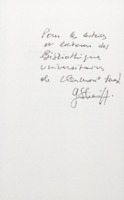 Pour les lecteurs
et lectrices des
Bibliothèques
universitaires
de Clermont Ferrand